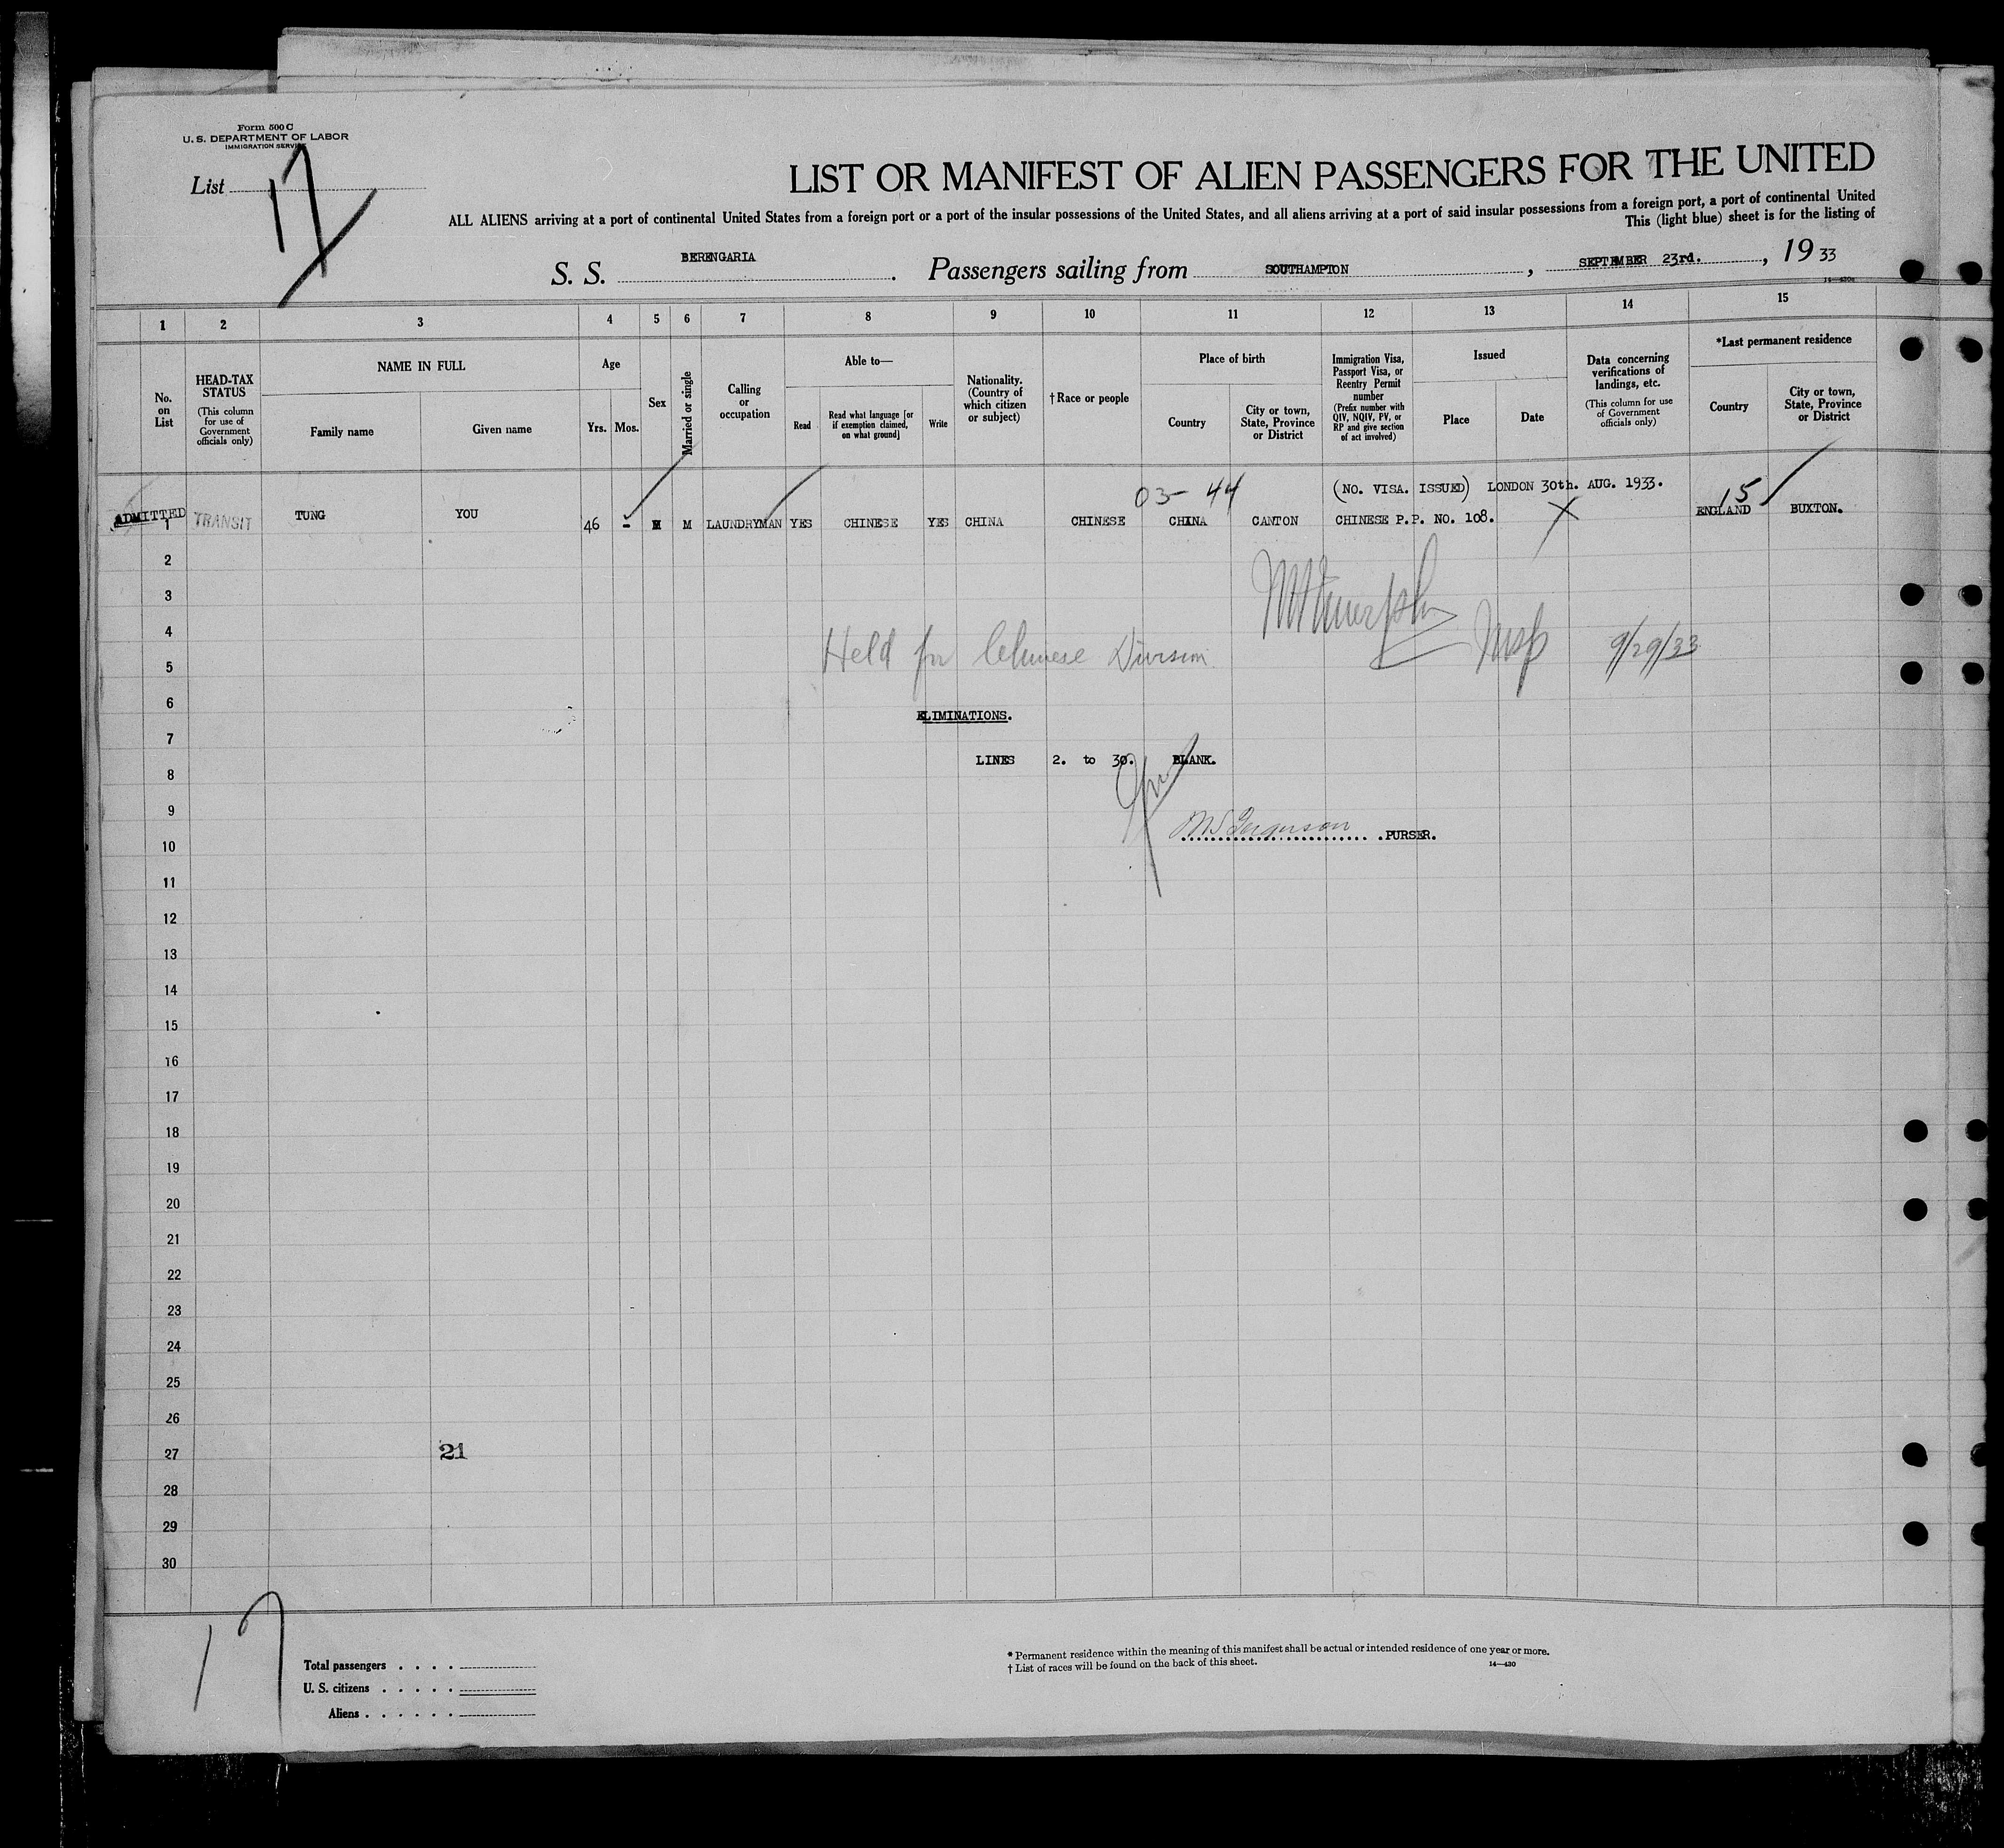 Form 500 C
U. S. DEPARTMENT OF LABOR
IMMIGRATION SERVICE
List 17
LIST OR MANIFEST OF ALIEN PASSENGERS FOR THE UNITED
ALL ALIENS arriving at a port of continental United States from a foreign port or a port of the insular possessions of the United States, and all aliens arriving at a port of said insular possessions from a foreign port, a port of continental United
This (light blue) sheet is for the listing of
S. S. BERENGARIA. Passengers sailing from SOUTHAMPTON, SEPTEMBER 23rd., 1933
1 2 3 4 5 6 7 8 9 10 11 12 13 14 15
No. on List
HEAD-TAX STATUS
(This column for use of Government officials only)
NAME IN FULL
Family name
Given name
Age
Yrs.
Mos.
Sex
Married or single
Calling or occupation
Able to—
Read
Read what language [or if exemption claimed, on what ground]
Write
Nationality. (Country of which citizen or subject)
†Race or people
Place of birth
Country
City or town, State, Province or District
Immigration Visa, Passport Visa, or Reentry Permit number
(Prefix number with QIV, NQIV, PV, or RP and give section of act involved)
Issued
Place
Date
Data concerning verifications of landings, etc.
(This column for use of Government officials only)
*Last permanent residence
Country
City or town, State, Province or District
03- 44
(NO. VISA. ISSUED) LONDON 30th. AUG. 1933.
15
ADMITTED 1 TRANSIT TUNG YOU 46 - M M LAUNDRYMAN YES CHINESE YES CHINA CHINESE CHINA CANTON CHINESE P.P. NO. 108. X ENGLAND BUXTON.
2
3
4
Held for Chinese Division Insp 9/29/33
5
6
ELIMINATIONS.
7
LINES 2. to 30. BLANK.
8
9
Ferguson PURSER.
10
11
12
13
14
15
16
17
18
19
20
21
22
23
24
25
26
27
21
28
29
30
17
Total passengers . . . .
U. S. citizens . . . . .
Aliens . . . . . .
* Permanent residence within the meaning of this manifest shall be actual or intended residence of one year or more.
† List of races will be found on the back of this sheet.
14—430